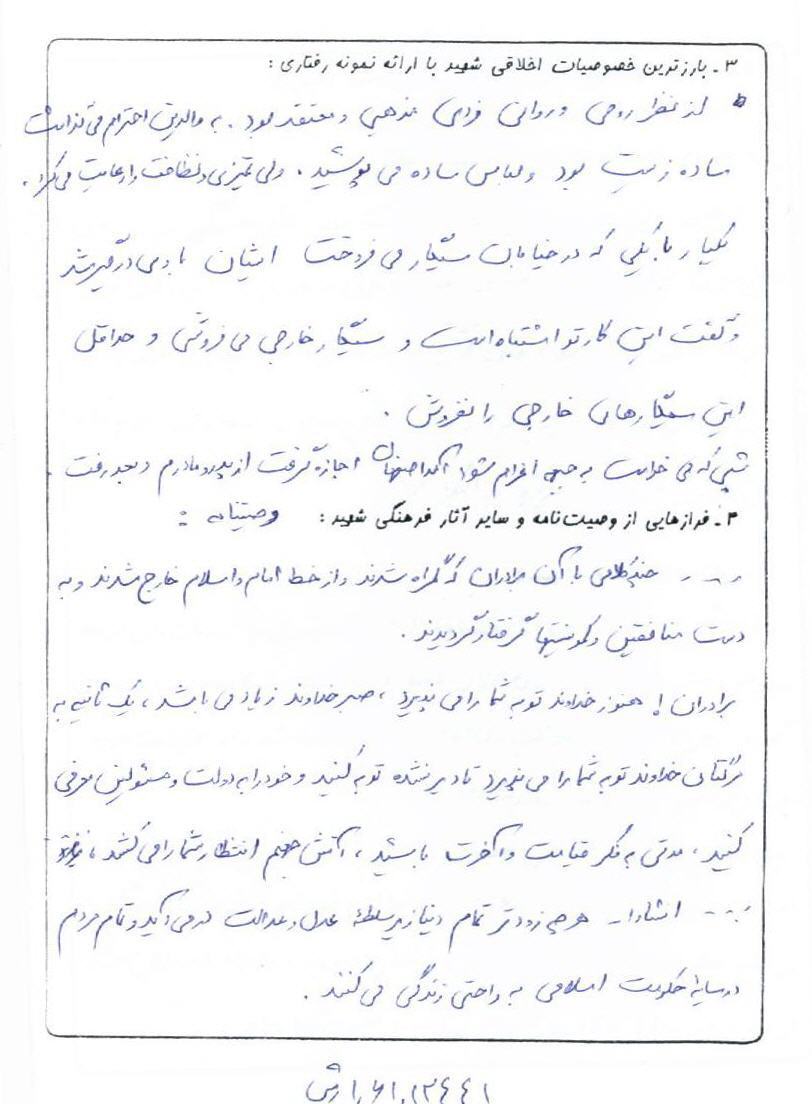 ۳ـ بارزترین خصوصیات اخلاقی شهید با ارائه نمونه رفتاری :
از نظر روحی و روانی فردی مذهبی و معتقد بود . به والدین احترام می‌گذاشت
ساده زیست بود و لباس ساده می پوشید . ولی تمیزی و نظافت را رعایت می‌کرد .
یکبار با یکی که در خیابان سیگار می فروخت ایشان با وی درگیر شد
و گفت این کار تو اشتباه است و سیگار خارجی می فروشی و حداقل
این سیگارهای خارجی را نفروش .
شبی که می خواست به جبهه اعزام شود آمد اصفهان اجازه گرفت از پدر و مادرم و بعد رفت .
۴ـ فرازهایی از وصیت‌نامه و سایر آثار فرهنگی شهید : وصیتنامه :
... چند کلامی با آن برادران که گمراه شدند و از خط امام و اسلام خارج شدند و به
دست منافقین و کمونیستها گرفتار گردیدند .
برادران ! هنوز خداوند توبه شما را می پذیرد ، صبر خداوند زیاد می باشد ، یک ثانیه به
مرگتان خداوند توبه شما را می پذیرد تا دیر نشده توبه کنید و خود را به دولت و مسئولین معرفی
کنید ، مدتی به فکر قیامت و آخرت باشید ، آتش جهنم انتظار شما را می کشد ،
... انشاءا... هر چه زودتر تمام دنیا زیر سلطهٔ عدل و عدالت در می آید و تمام مردم
در سایهٔ حکومت اسلامی به راحتی زندگی می کنند .